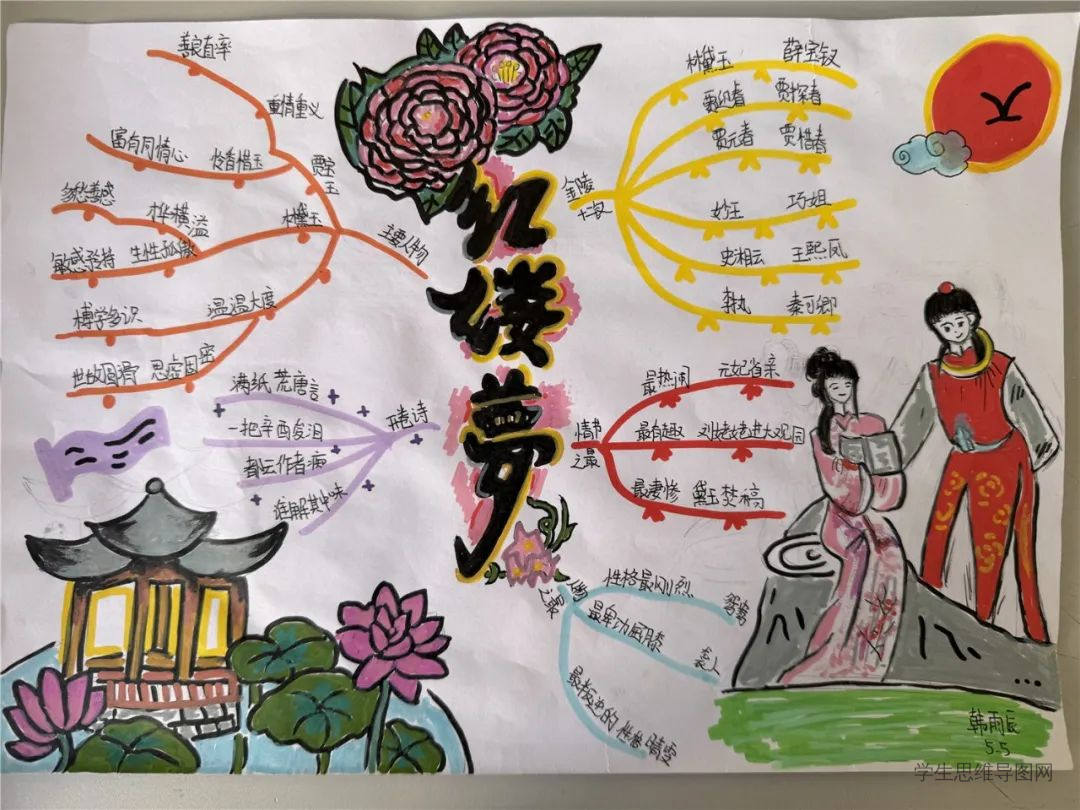 红楼梦
主要人物
贾宝玉
善良直率
重情重义
富有同情心
怜香惜玉
林黛玉
多愁善感
才华横溢
敏感矜持
生性孤傲
博学多识
温温大度
世故圆滑
思虑周密
开卷诗
满纸荒唐言
一把辛酉泪
都云作者痴
谁解其中味
金陵十二钗
林黛玉 薛宝钗
贾迎春 贾探春
贾元春 贾惜春
妙玉 巧姐
史湘云 王熙凤
李纨 秦可卿
情书之最
最热闹 元妃省亲
最有趣 刘姥姥进大观园
最凄惨 黛玉焚稿
之最
性格最刚烈 鸳鸯
最卑躬屈膝 袭人
最叛逆的性格 晴雯
韩雨辰
5.5
学生思维导图网